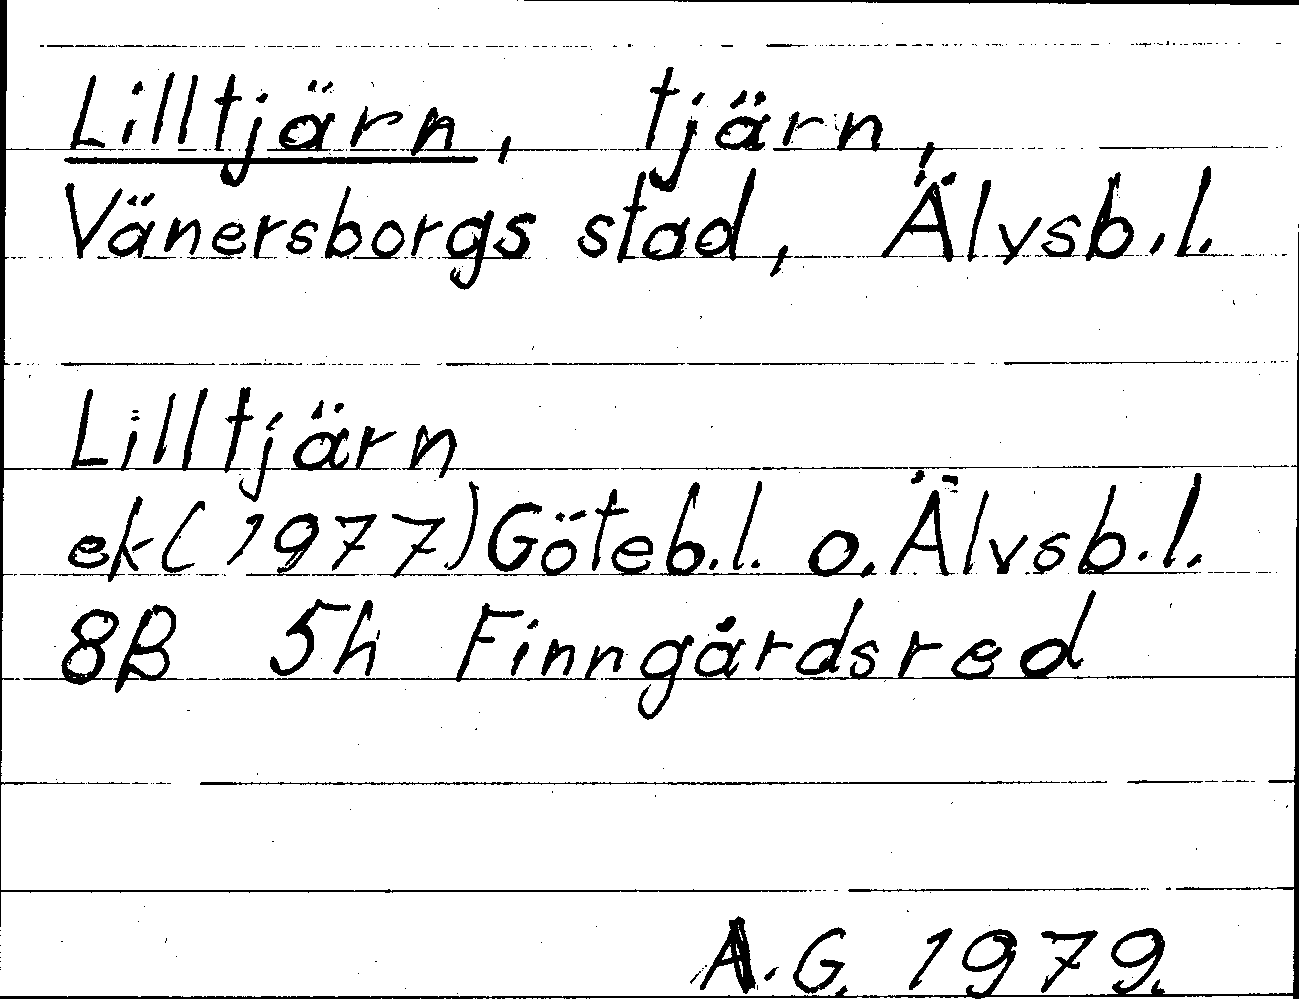 Lilltjärn, tjärn,
Vänersborgs stad, Älvsb.l.
Lilltjärn
ek (1977) Göteb.l. o. Älvsb.l.
8B 5h Finngårdsred
A.G. 1979.